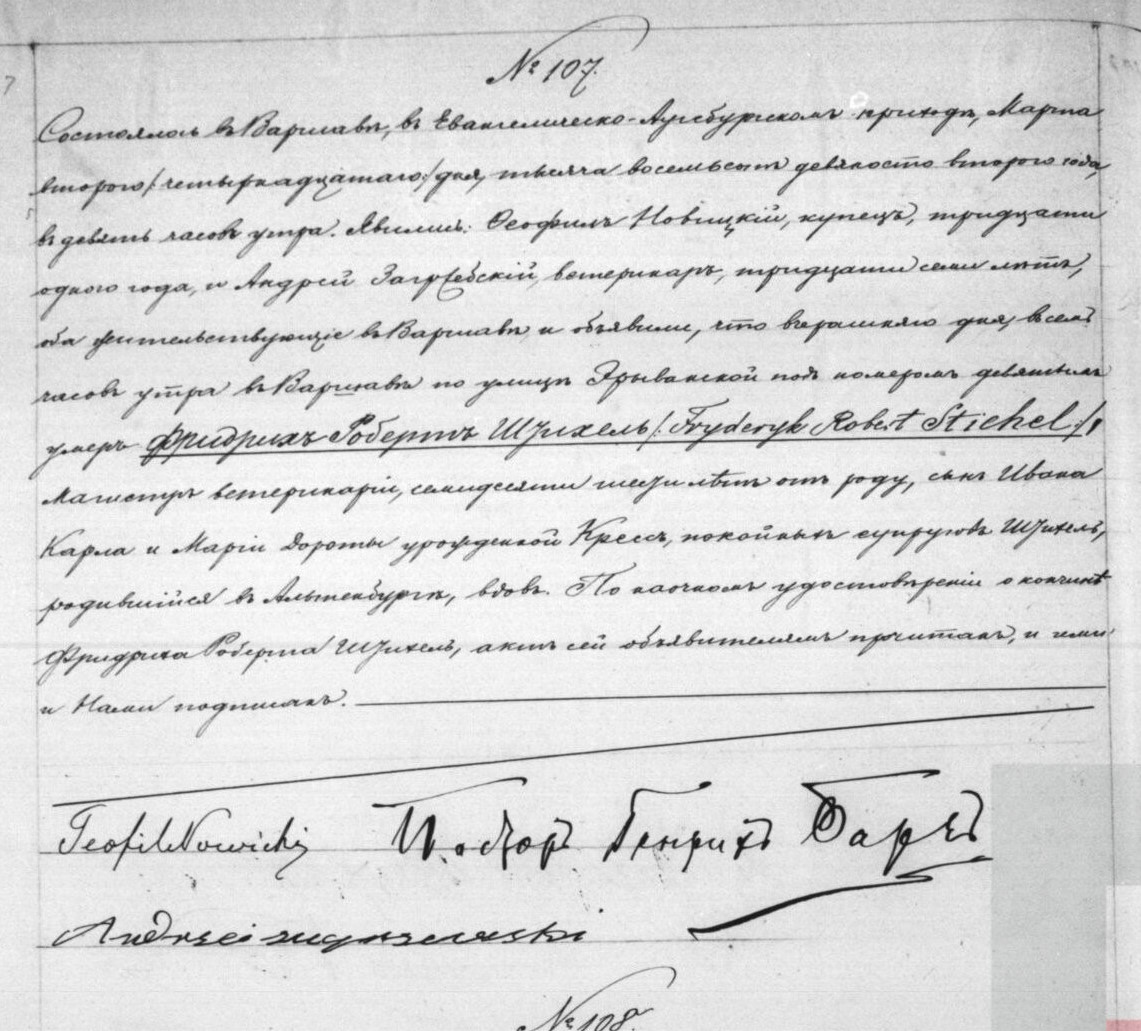 № 107.
Состоялось въ Варшавѣ, въ Евангелическо-Аугсбургскомъ приходѣ, Марта
второго /: четырнадцатаго :/ дня, тысяча восемьсотъ девяносто второго года,
въ девять часовъ утра. Явились: Ѳеофилъ Новицкій, купецъ, тридцати
одного года, и Андрей Загржебскій, ветеринаръ, тридцати семи лѣтъ,
оба жительствующіе въ Варшавѣ и объявили, что вчерашняго дня, въ семь
часовъ утра въ Варшавѣ по улицѣ Эрыванской подъ номеромъ девятымъ
умеръ Фридрихъ Робертъ Штихель /: Fryderyk Robert Stichel :/,
Магистръ ветеринаріи, семидесяти шести лѣтъ отъ роду, сынъ Ивана
Карла и Маріи Дороты урожденной Крессъ, покойныхъ супруговъ Штихель,
родившійся въ Альтенбургѣ, вдовъ. По наочномъ удостовѣреніи о кончинѣ
Фридриха Роберта Штихель, актъ сей объявителямъ прочитанъ, и ими
и Нами подписанъ.
Teofil Nowicki
Генрихъ
Andrzej
№ 108.